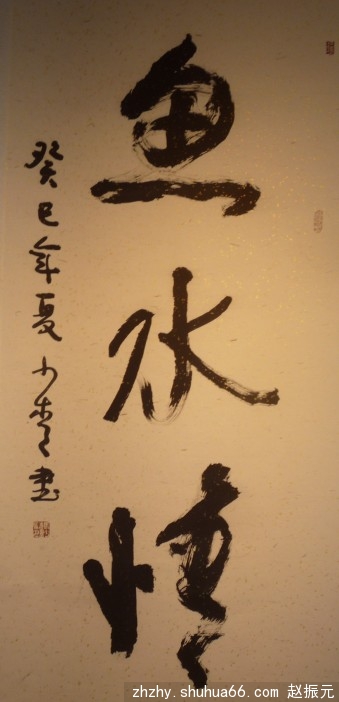 鱼水情
癸巳年夏少青书
zhzhy.shuhua66.com 赵振元